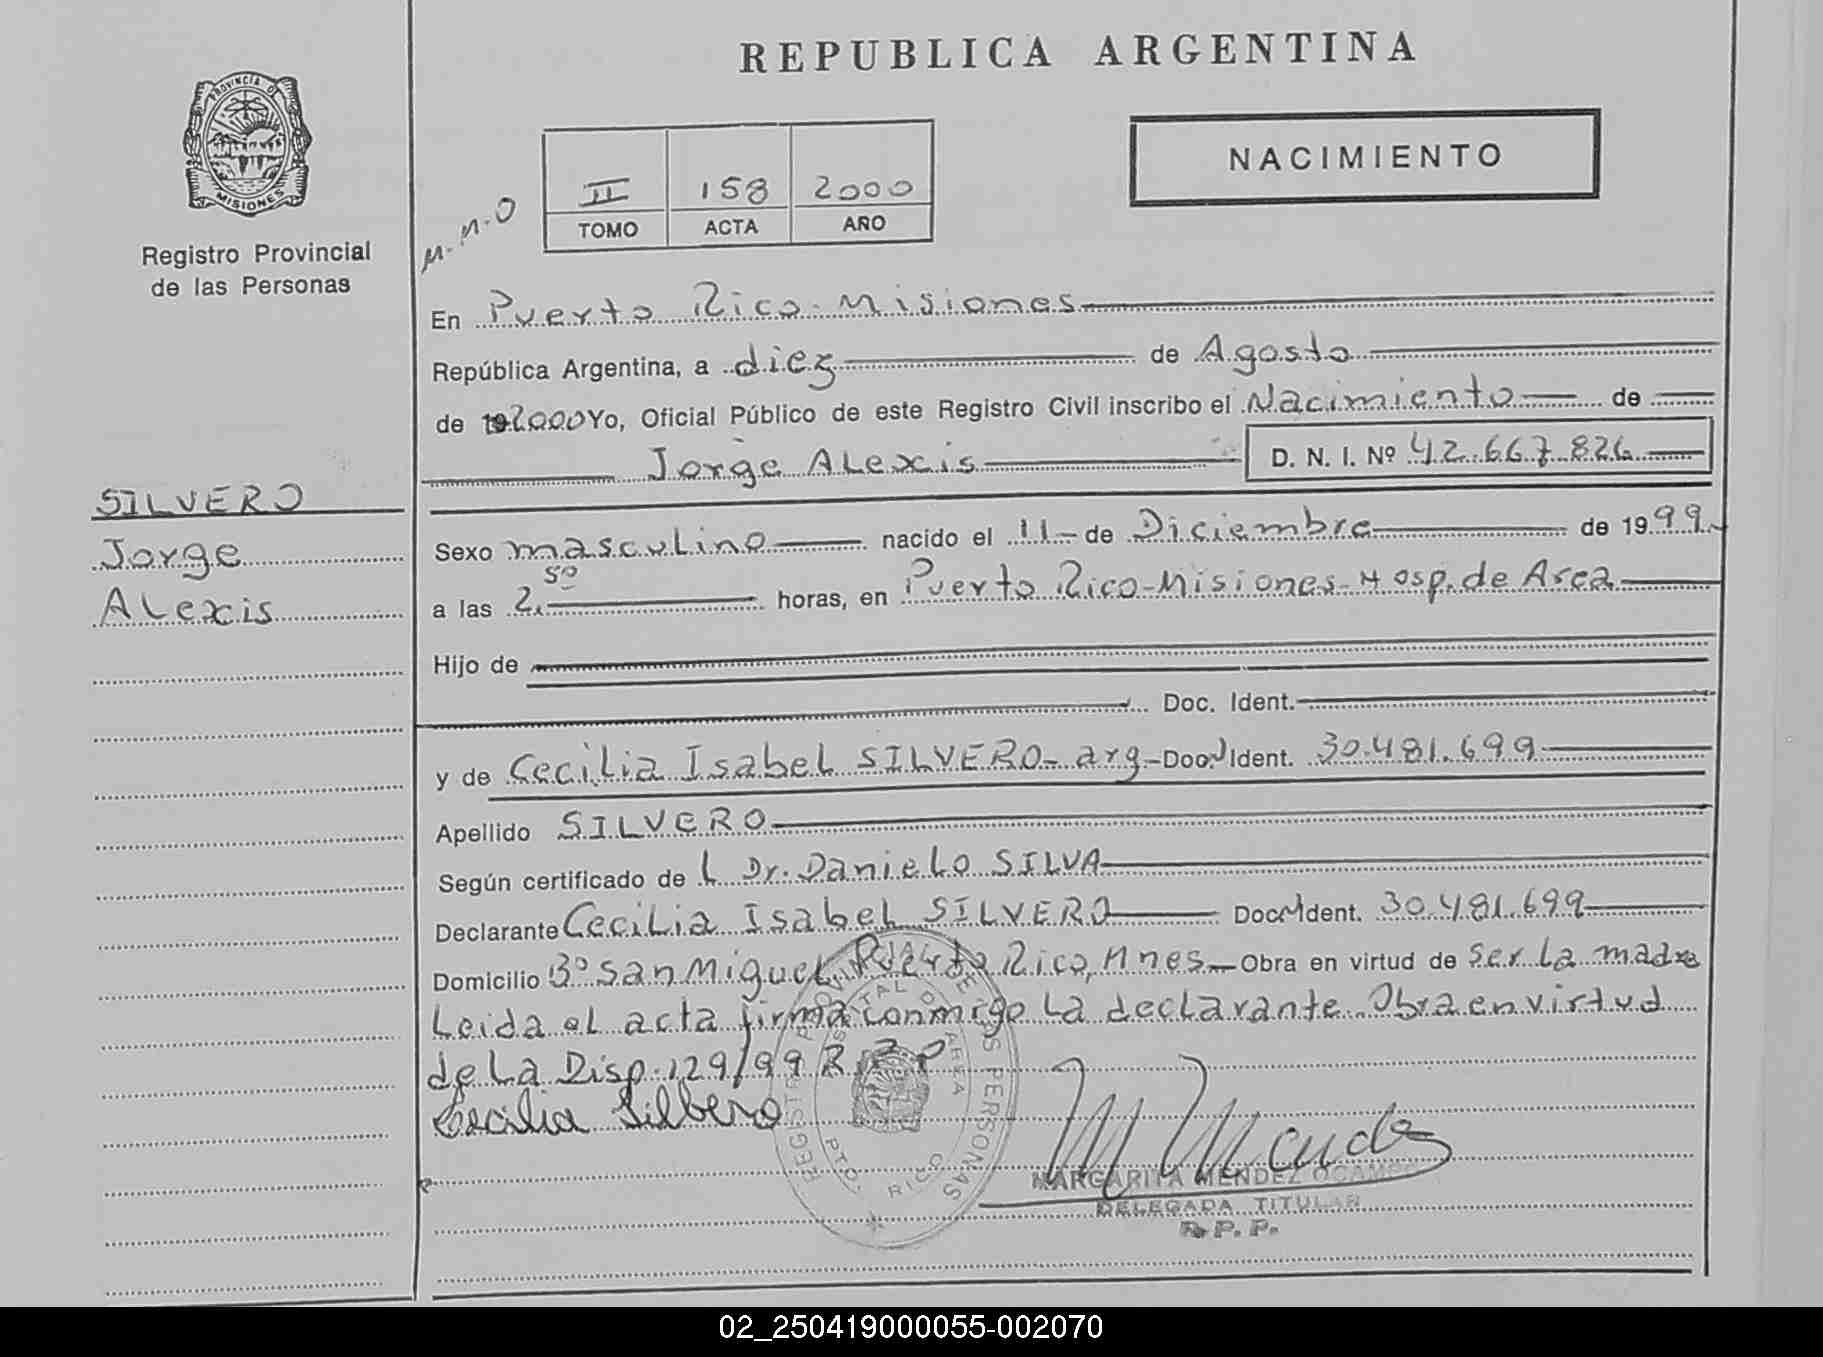 REPUBLICA ARGENTINA
NACIMIENTO
PROVINCIA DE
MISIONES
Registro Provincial
de las Personas
M.N.O
II 158 2000
TOMO ACTA AÑO
SILVERO
Jorge
Alexis
En Puerto Rico-Misiones
República Argentina, a diez de Agosto
de 192000 Yo, Oficial Público de este Registro Civil inscribo el Nacimiento de
Jorge Alexis D. N. I. Nº 42.667.826
Sexo masculino nacido el 11 de Diciembre de 1999
a las 2,50 horas, en Puerto Rico-Misiones-Hosp. de Area
Hijo de
Doc. Ident.
y de Cecilia Isabel SILVERO-arg-Doc. Ident. 30.481.699
Apellido SILVERO
Según certificado de L Dr. Danielo SILVA
Declarante Cecilia Isabel SILVERO Doc. Ident. 30.481.699
Domicilio Bº San Miguel Puerto Rico, Mnes Obra en virtud de ser La madre
Leida el acta firma conmigo La declarante. Obra en virtud
de La Disp. 129/99 R.P.P
Cecilia Silbero
REGISTRO PROVINCIAL DE LAS PERSONAS
HOSPITAL DE AREA
PTO. RICO
M Mendez
MARGARITA MENDEZ OCAMPO
DELEGADA TITULAR
R. P. P.
02_250419000055-002070